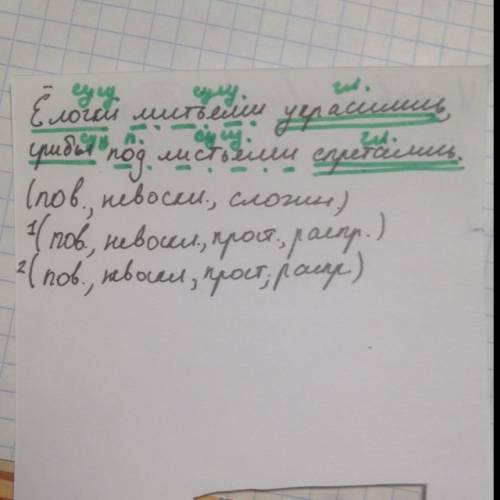 сущ. сущ. гл.
Ёлочки листьями украсились,
сущ. п. сущ. гл.
грибы под листьями спрятались.
(пов., невоскл., сложн.)
1(пов., невоскл., прост., распр.)
2(пов., невоскл., прост., распр.)